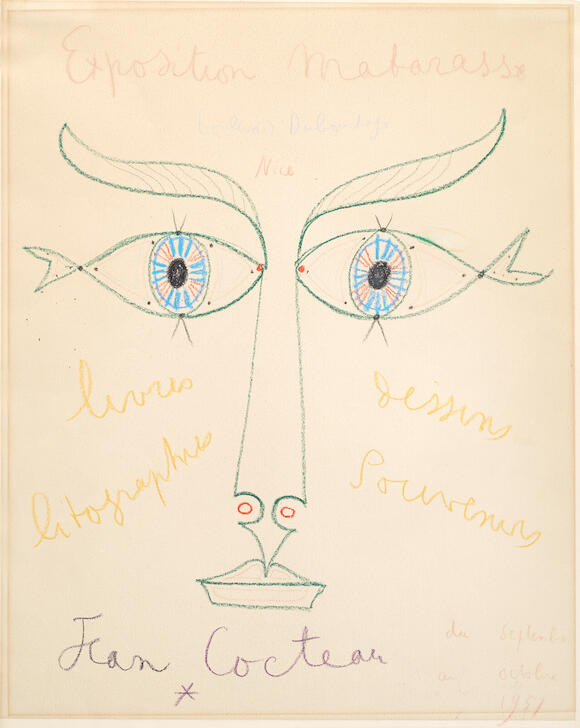 Exposition Mabarass
boulevard Dubouchage
Nice
livres
dessins
litographies
Souvenirs
Jean Cocteau
du Septembre
au octobre